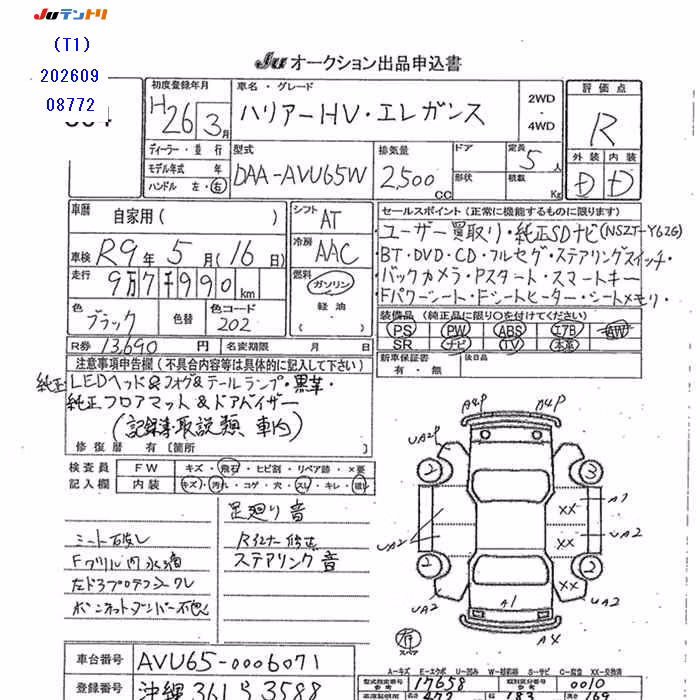 JUテントリ
(T1)
202609
08772
JU オークション出品申込書
初度登録年月
H26 3月
車名・グレード
ハリアーHV・エレガンス
2WD
4WD
評価点
R
ディーラー・並行
モデル年式 年
ハンドル 左・右
型式
DAA-AVU65W
排気量
2,500 CC
ドア
形状
定員 5人
積載 Kg
外装 内装
D D
車歴
自家用( )
シフト AT
冷房 AAC
セールスポイント(正常に機能するものに限ります)
ユーザー買取り・純正SDナビ(NSZT-Y62G)
BT・DVD・CD・フルセグ・ステアリングスイッチ・
バックカメラ・Pスタート・スマートキー
Fパワーシート・Fシートヒーター・シートメモリ・
車検 R9年5月(16日)
走行 9万7千990km
燃料 ガソリン
軽油
色 ブラック
色替
色コード 202
装備品(純正品に限り○を付けてください)
PS PW ABS エアB AW
SR ナビ TV 本革
R券 13,690円
名変期限 月 日
新車保証書
有・無
後日品
注意事項申告欄(不具合内容等は具体的に記入して下さい)
純正LEDヘッド&フォグ&テールランプ・黒革・
純正フロアマット&ドアバイザー
(記録簿・取説類 車内)
修復歴 有〔箇所
検査員
記入欄
FW キズ・飛石・ヒビ割・リペア跡・×要
内装 キズ・汚れ・コゲ・穴・スレ・キレ・破れ
足廻り音
シート破れ
Fグリル内水滴
ステアリング音
A4P A4P
UA2P
2 3
A1
XX
UA2
XX
UA2
2 2
XX
UA2
A1
UA2
A4
有
スペア
車台番号 AVU65-0006071
A-キズ E-エクボ U-凹み W-補修跡 S-サビ C-腐蝕 XX-交換済
型式指定番号 17658
類別区分番号 0010
登録番号 沖縄 361 る 3588
472 183 169